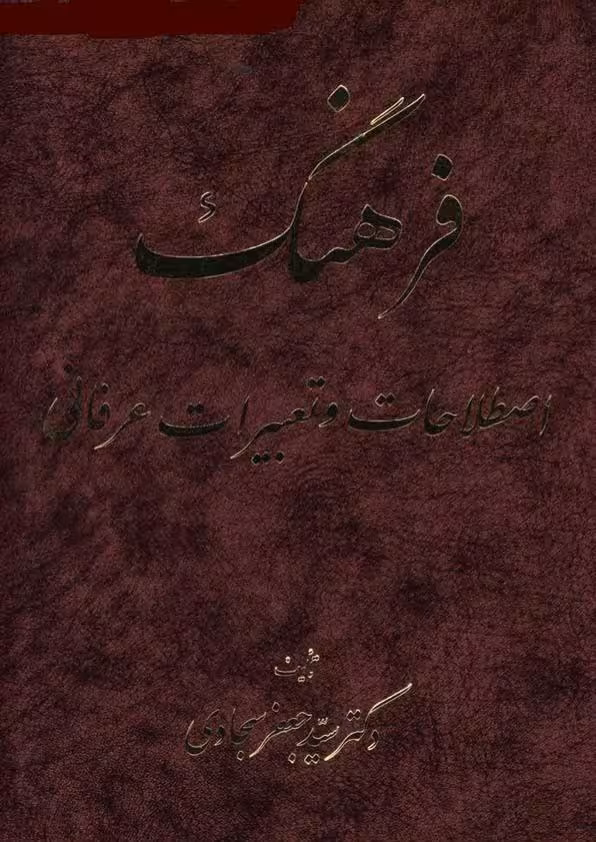 فرهنگ
اصطلاحات و تعبیرات عرفانی
تألیف
دکتر سید جعفر سجادی